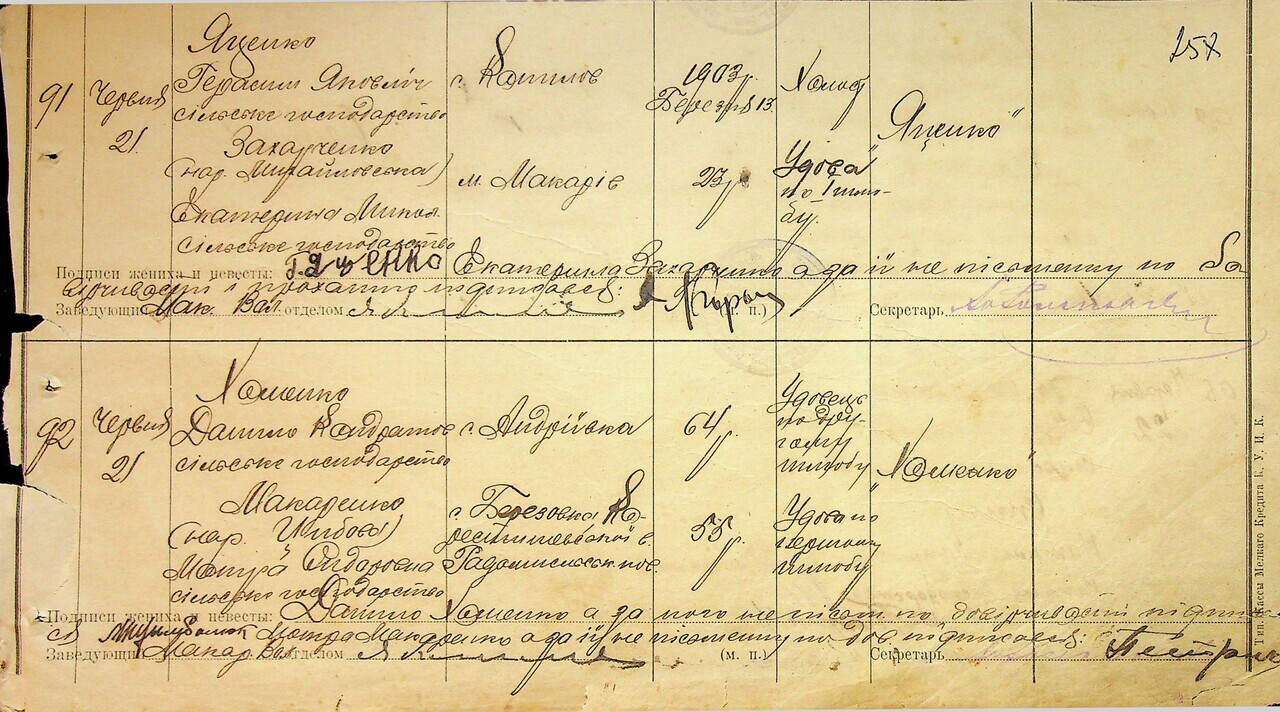 257
Яценко
91
Червня
21.
Герасим Яковліч
сільське господарство
с. Копилов
1903 р.
Березня 13
Холост
"Яценко"
Захарченко
(нар. Михайловська)
Екатерина Микол.
сільське господарство
м. Макарів
23 р.
Удова
по І шлю-
бу.
Подписи жениха и невесты: Г. Яценко Екатерина Захарченко а за її не písьменну по
Заведующий Мак. Вол. отделом
(м. п.)
Секретарь
Хоменко
92
Червня
21
Данило Кондратов
сільське господарство
с. Андріївка
64 р.
Удовець
по дру-
гому
шлюбу
"Хоменко"
Макаренко
(нар. Шибова)
Мотря Сидоровна
сільське господарство
с. Березовка Ко-
ростишевської в.
Радомисльськ. пов.
55 р.
Удова по
першому
шлюбу
Подписи жениха и невесты: Данило Хоменко а за його не písьм. по довірчивості підписа-
ся Мотра Макаренко а за її не písьменну по дов. підписався:
Заведующий Макар. Вол. отделом
(м. п.)
Секретарь
Тип. Кассы Мелкаго Кредита К. У. И. К.